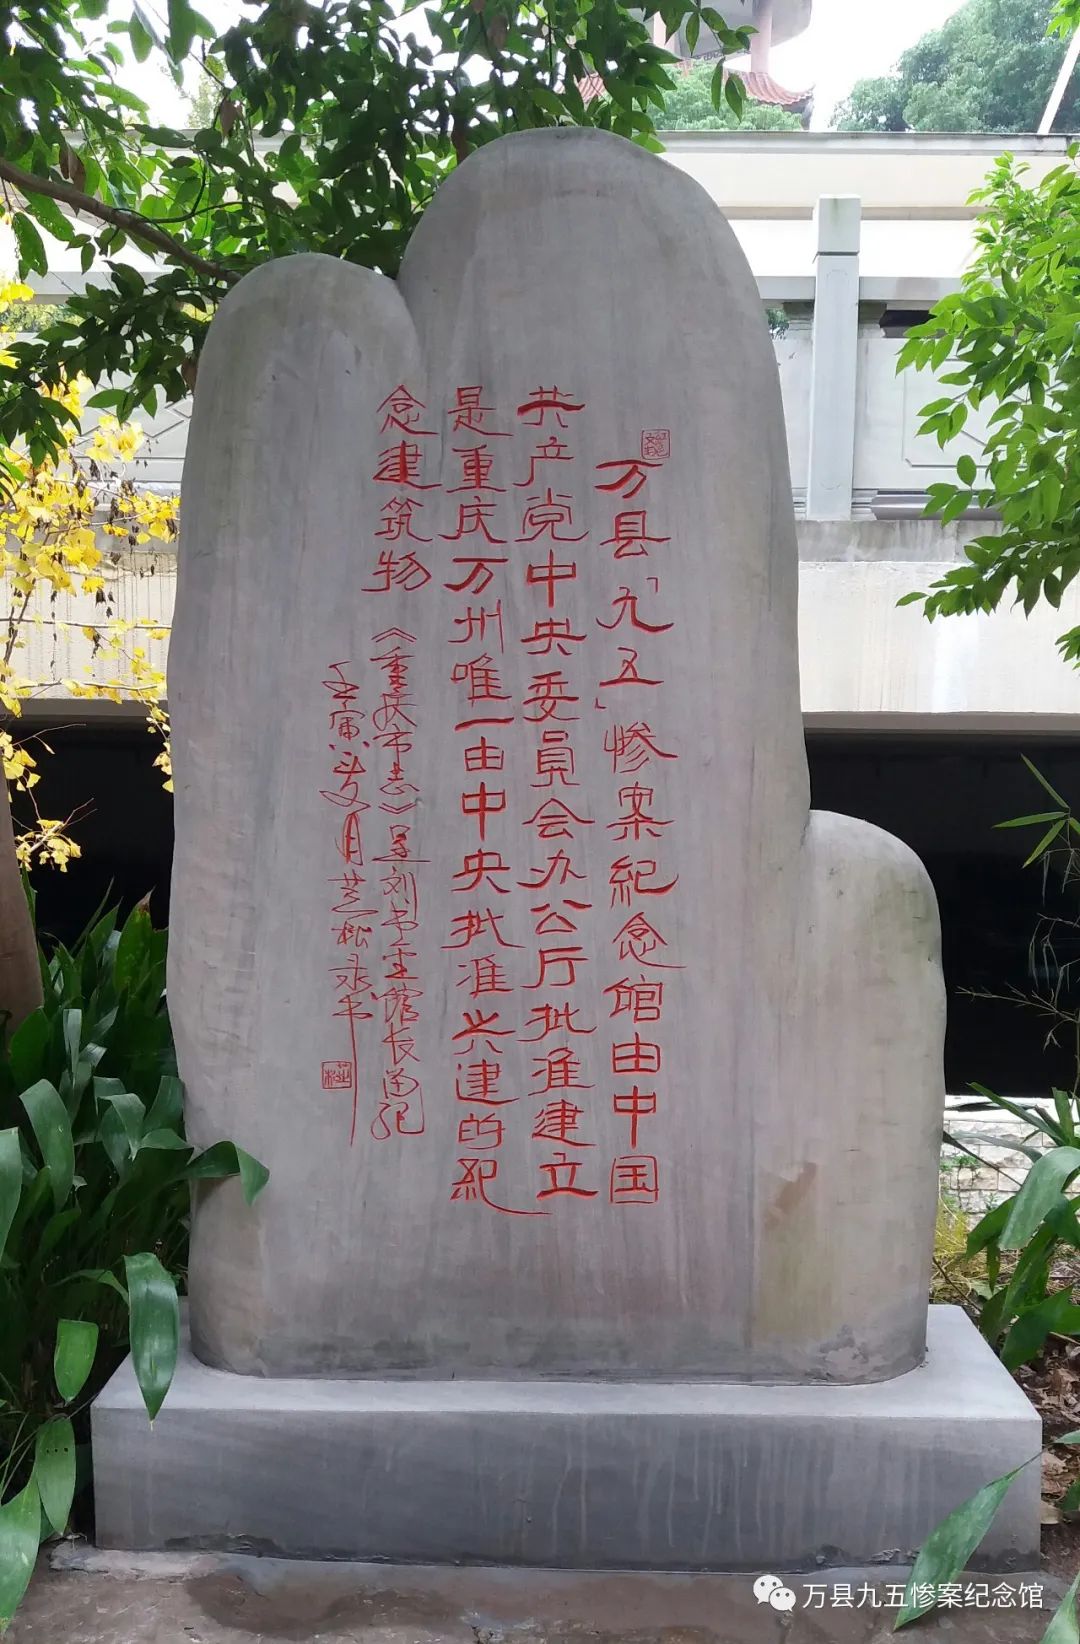 万县「九五」惨案纪念馆由中国
共产党中央委员会办公厅批准建立
是重庆万州唯一由中央批准兴建的纪
念建筑物
《重庆市志》是刘书云馆长函记
壬寅
月芝松录书
万县九五惨案纪念馆